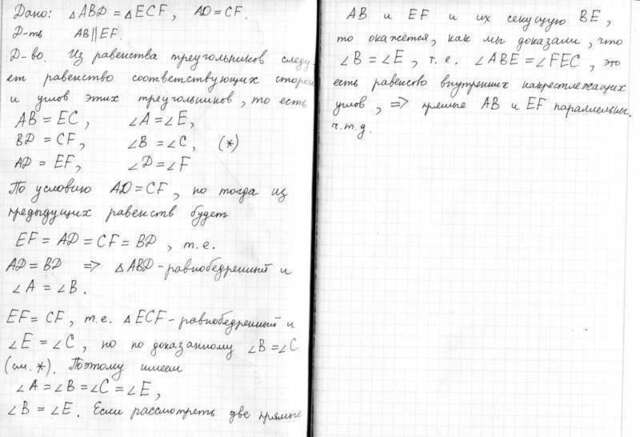 Дано: △ABD = △ECF, AD = CF.
Д-ть AB∥EF.
Д-во. Из равенства треугольников следу-
ет равенство соответствующих сторон
и углов этих треугольников, то есть
AB = EC, ∠A = ∠E,
BD = CF, ∠B = ∠C, (*)
AD = EF, ∠D = ∠F
По условию AD = CF, но тогда из
предыдущих равенств будет
EF = AD = CF = BD, т.е.
AD = BD ⇒ △ABD - равнобедренный и
∠A = ∠B.
EF = CF, т.е. △ECF - равнобедренный и
∠E = ∠C, но по доказанному ∠B = ∠C
(см. *). Поэтому имеем
∠A = ∠B = ∠C = ∠E,
∠B = ∠E. Если рассмотреть две прямые
AB и EF и их секущую BE,
то окажется, как мы доказали, что
∠B = ∠E, т.е. ∠ABE = ∠FEC, это
есть равенство внутренних накрестлежащих
углов, ⇒ прямые AB и EF параллельны.
ч.т.д.